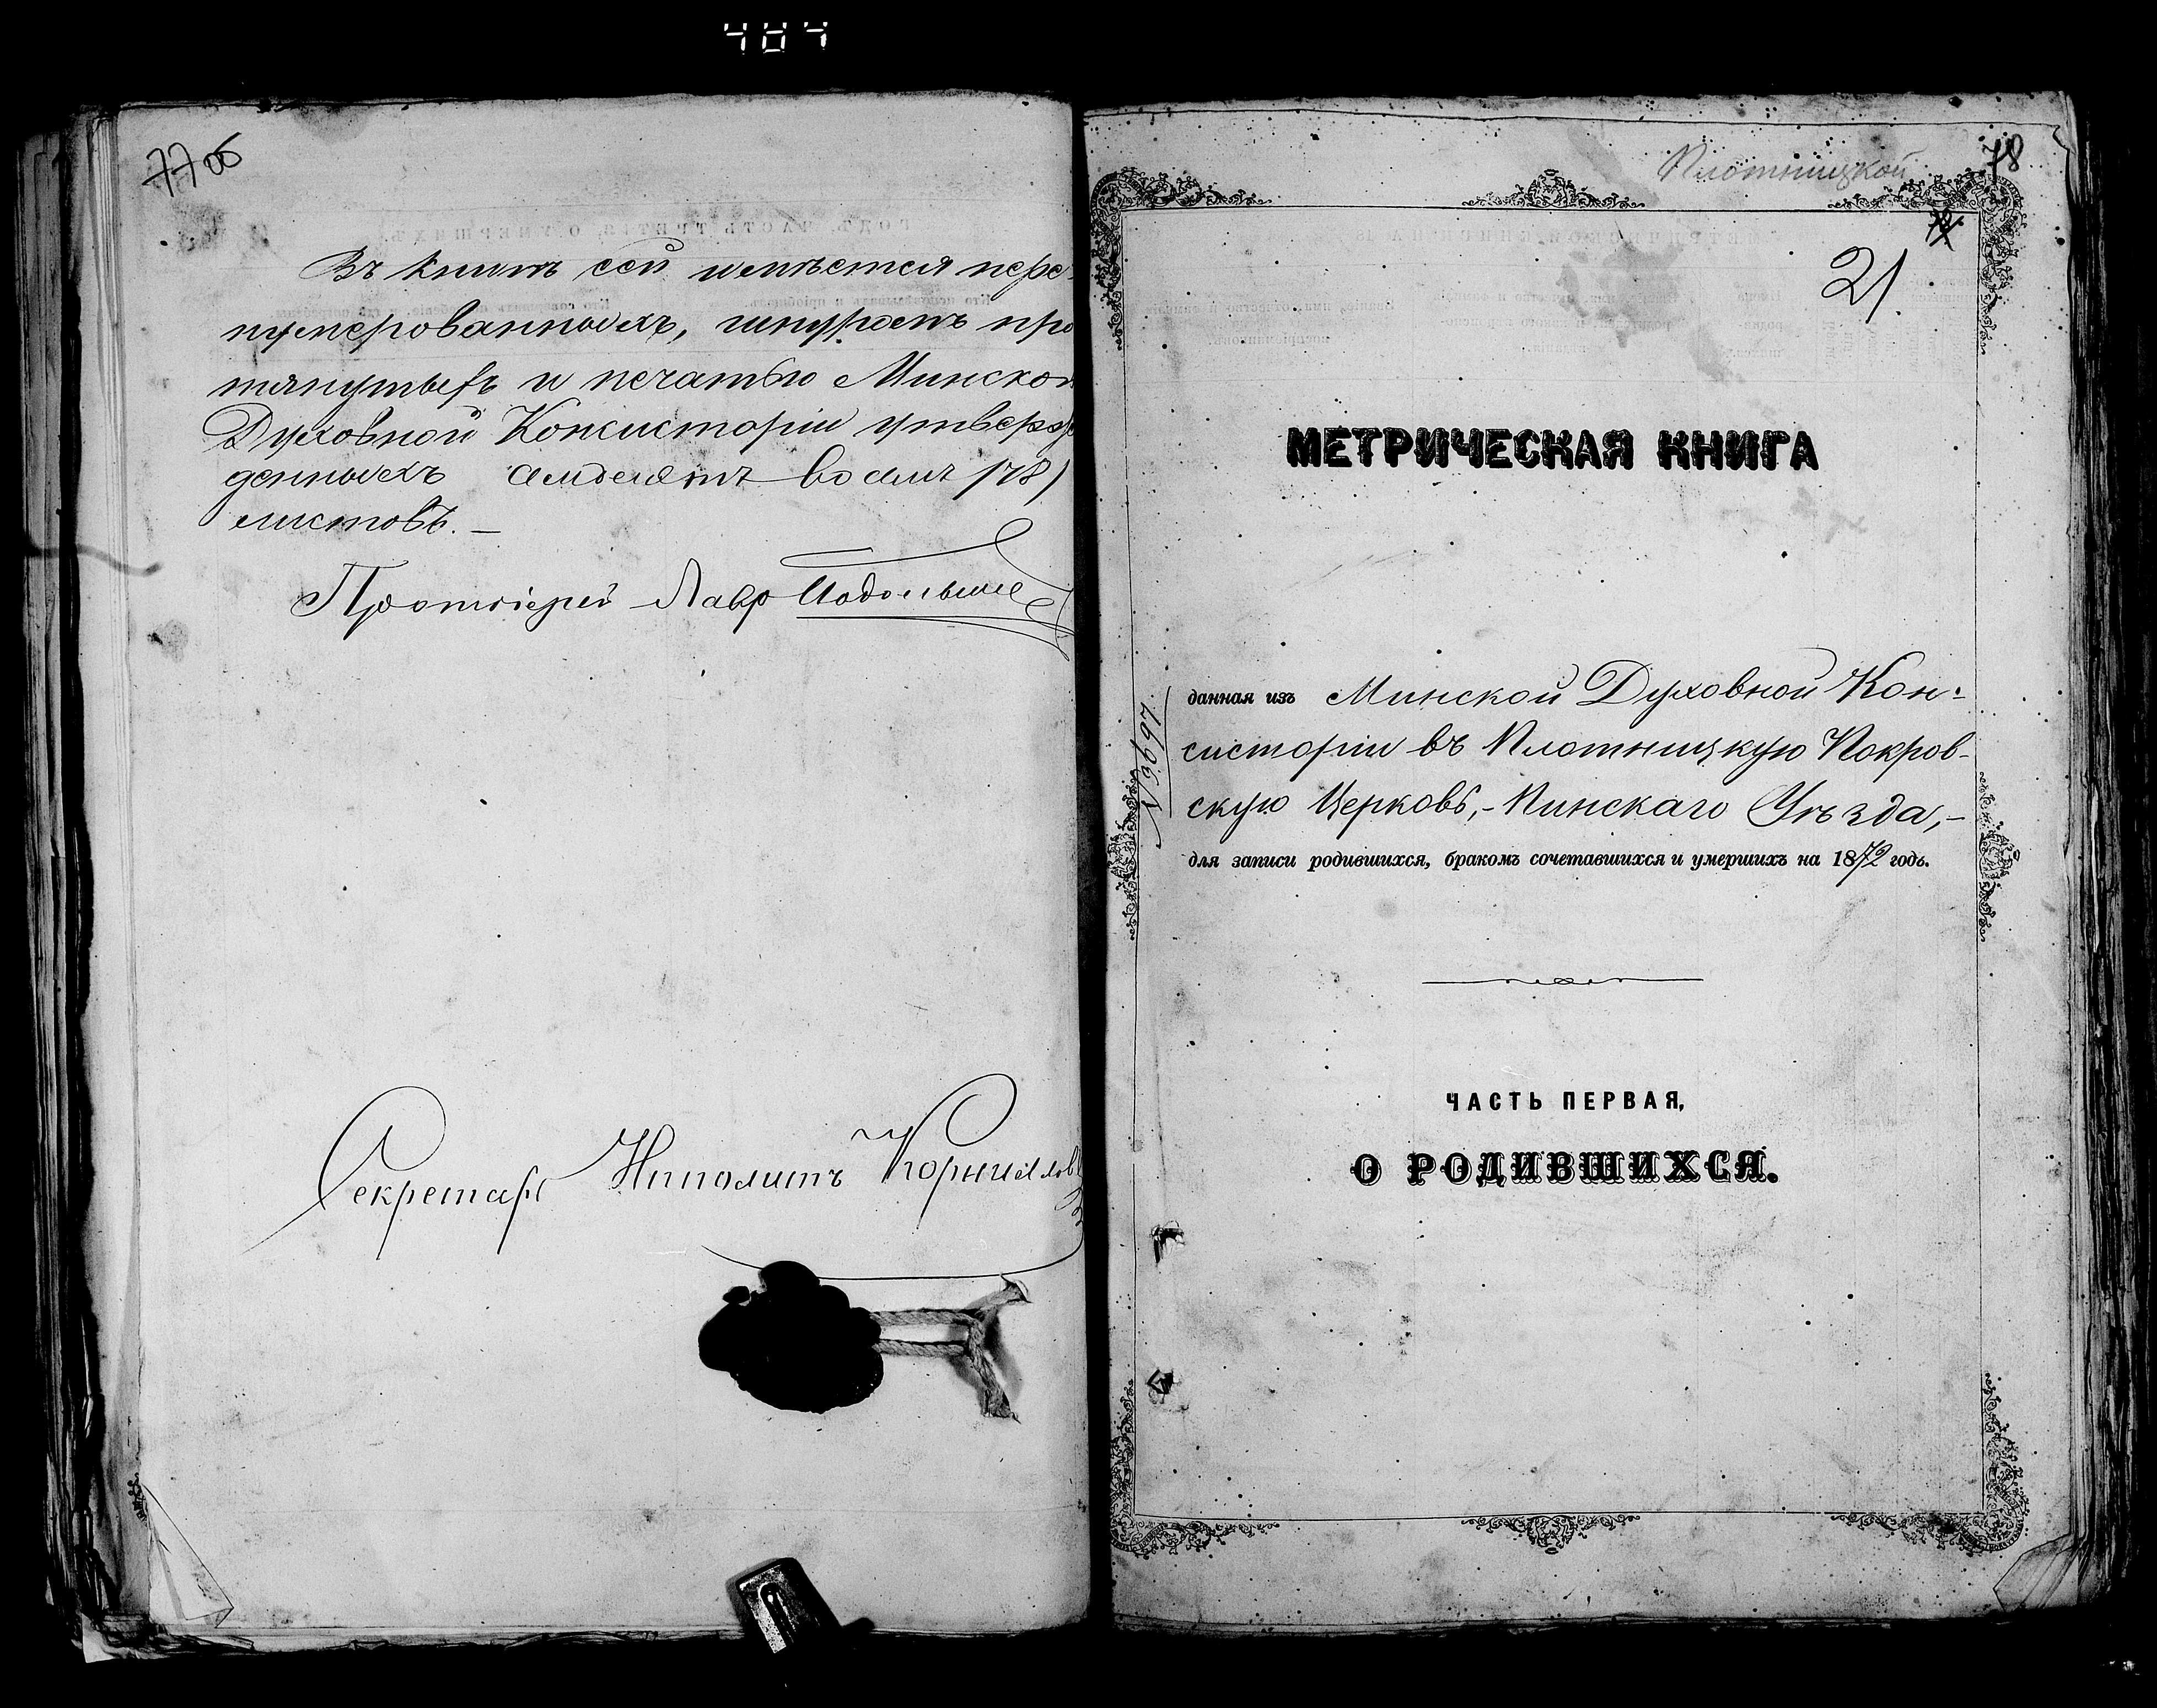 77 об
Въ книгѣ сей имѣется пере-
нумерованныхъ, шнуромъ про
тянутыхъ и печатью Минской
Духовной Консисторіи утверж
денныхъ семдесятъ восемь (78)
листовъ. —
Протоіерей Лавръ
Секретарь Ипполитъ
Плотницкой
78
21.
МЕТРИЧЕСКАЯ КНИГА
№ 3697
данная изъ Минской Духовной Кон-
систоріи въ Плотницкую Покров-
скую Церковь, - Пинскаго Уѣзда, -
для записи родившихся, бракомъ сочетавшихся и умершихъ на 1872 годъ.
ЧАСТЬ ПЕРВАЯ,
О РОДИВШИХСЯ.